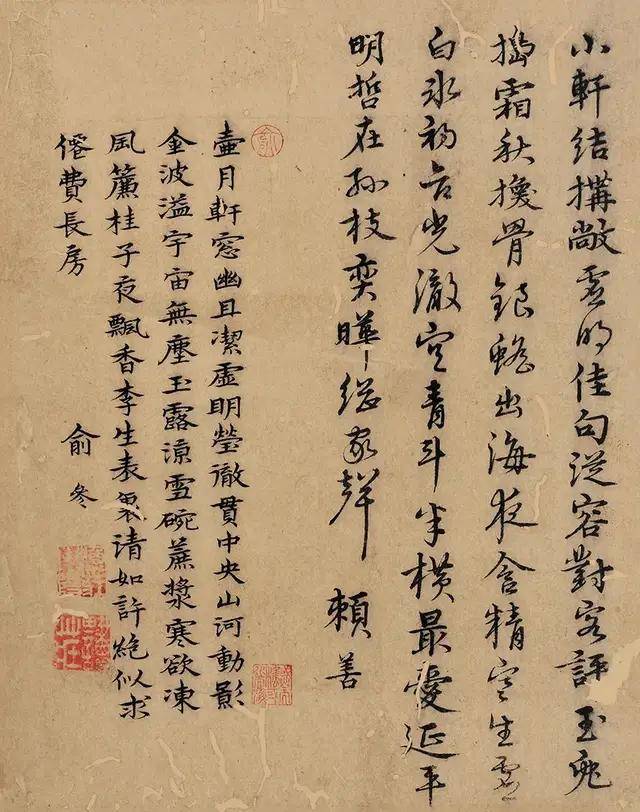 小軒結搆敞虛明佳句從容對客評玉兔
搗霜秋換骨銀蟾出海夜含精室生虛
白氷初合光澈空青斗半橫最愛延平
明哲在孫枝奕曄繼家聲
賴善
壷月軒窓幽且潔虛明瑩徹貫中央山河動影
金波溢宇宙無塵玉露涼雪碗蔗漿寒欲凍
風簾桂子夜飄香李生表裏清如許絕似求
僊費長房
俞参